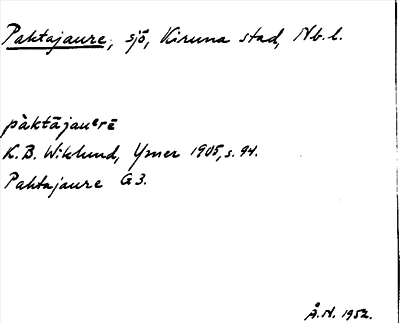 Paktajaure, sjö, Kiruna stad, Nb. l.
pàktājauᵉrē
K.B. Wiklund, Ymer 1905, s. 94.
Paktajaure G3.
Å.N. 1952.